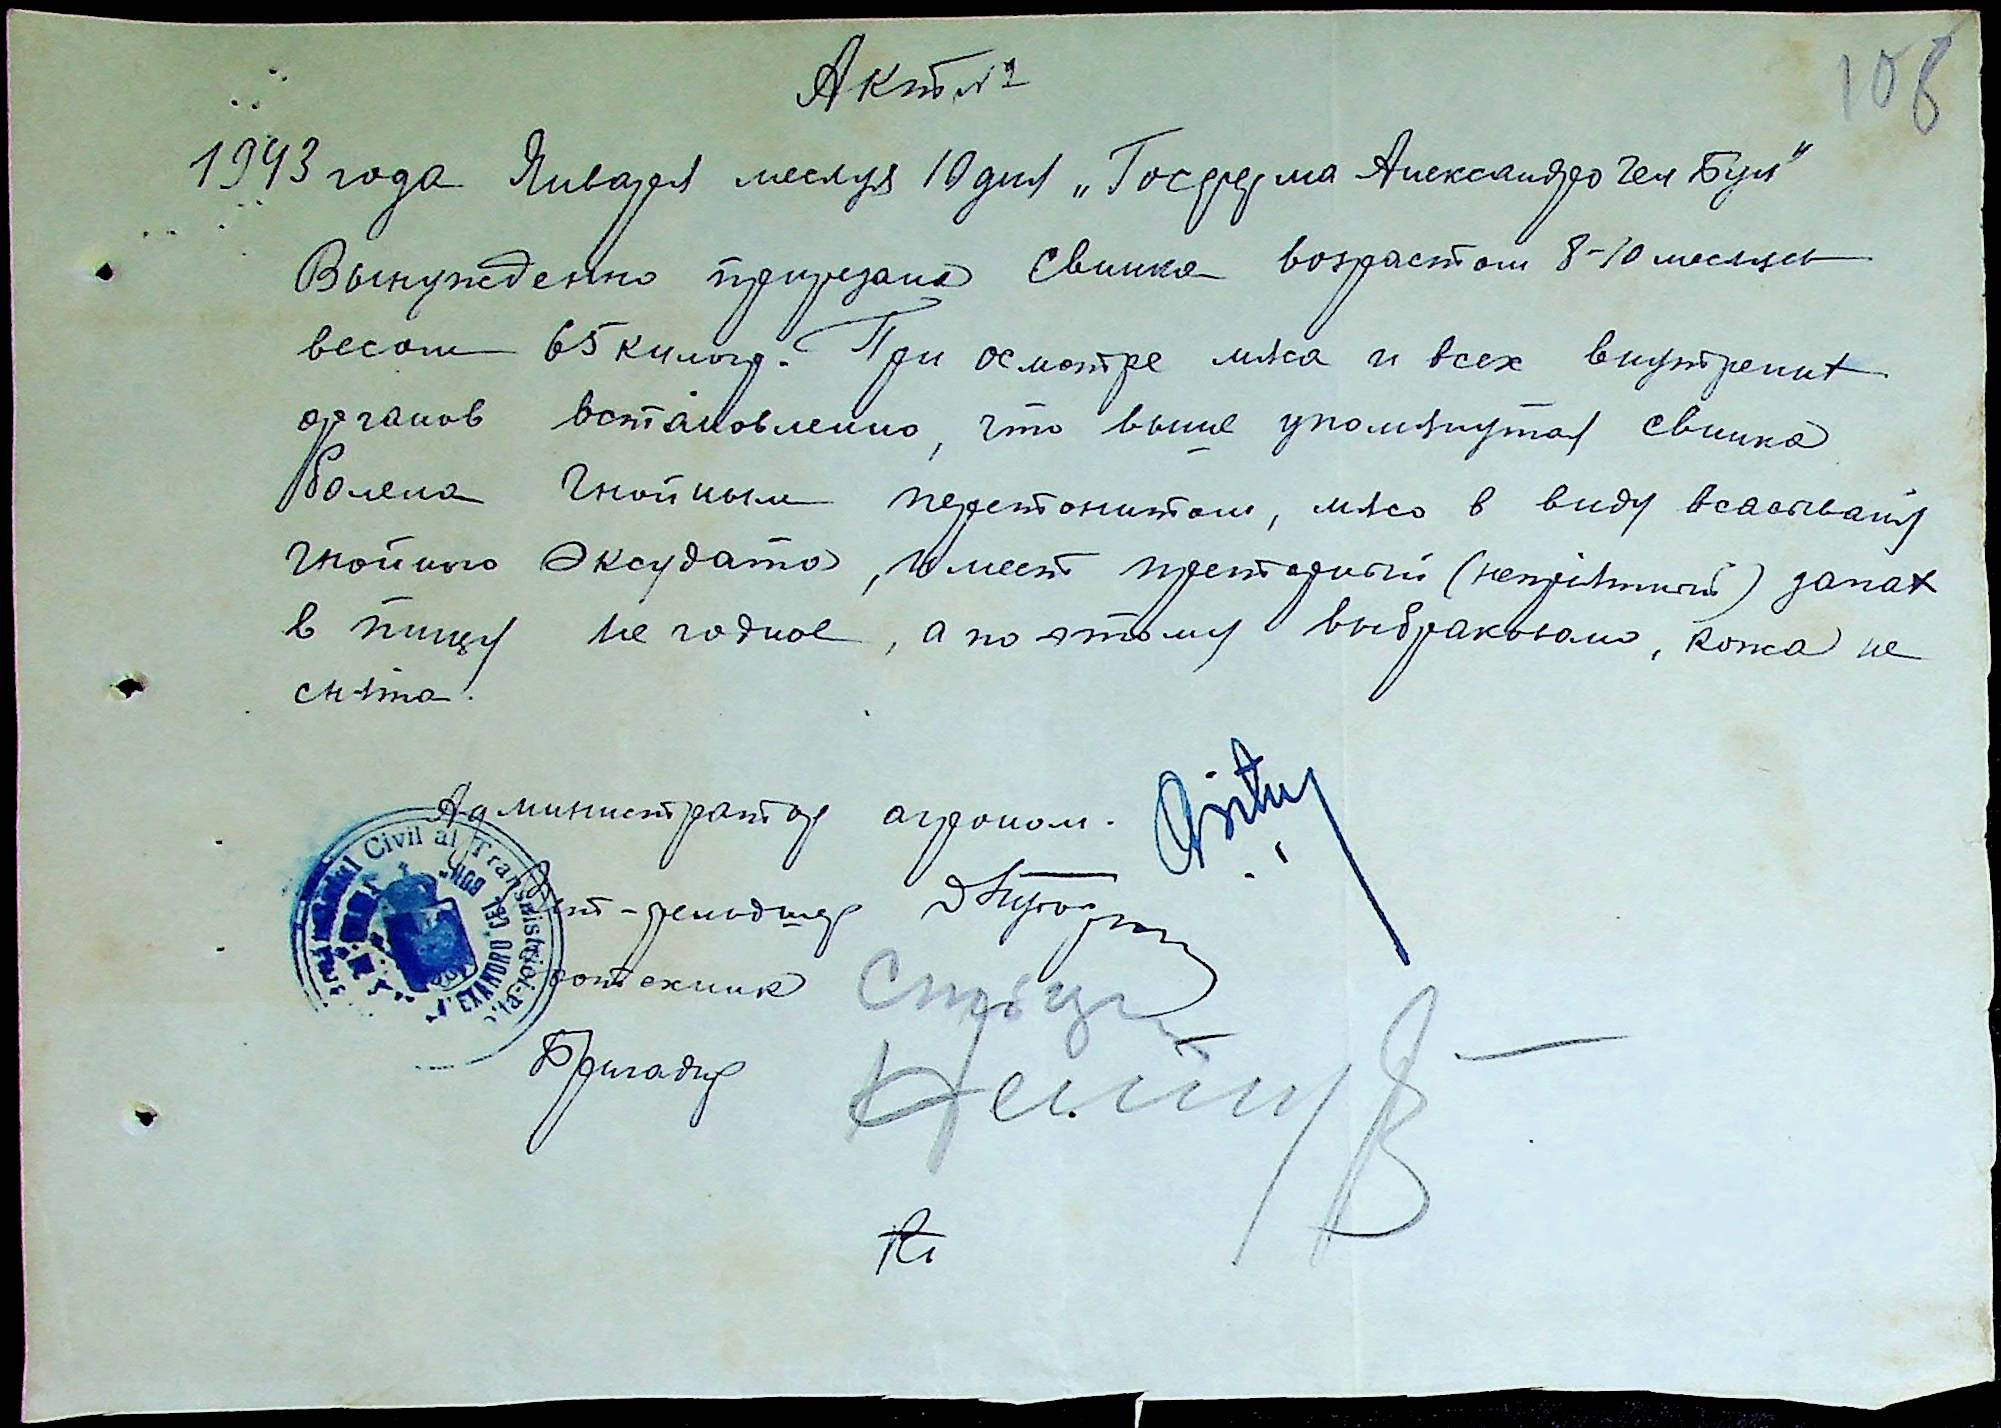 108
Акт №2
1943 года Января месяця 10 дня „Госферма Александро чел Бун"
Вынужденно прирезана свинка возрастом 8-10 месяцев
весом 65 килогр. При осмотре мяса и всех внутрених
органов встановленно, что выше упомянутая свинка
болела гнойным перетонитом, мясо в виду всасываня
гнойного эксудата, имеет преторный (неприятный) запах
в пищу не годное, а по этому выбраковано, кожа не
снята.
Администратор агроном.
Вет-фельдшер
зоотехник
Бригадир
Civil al Transnistriei
ALEXANDRO CEL BUN